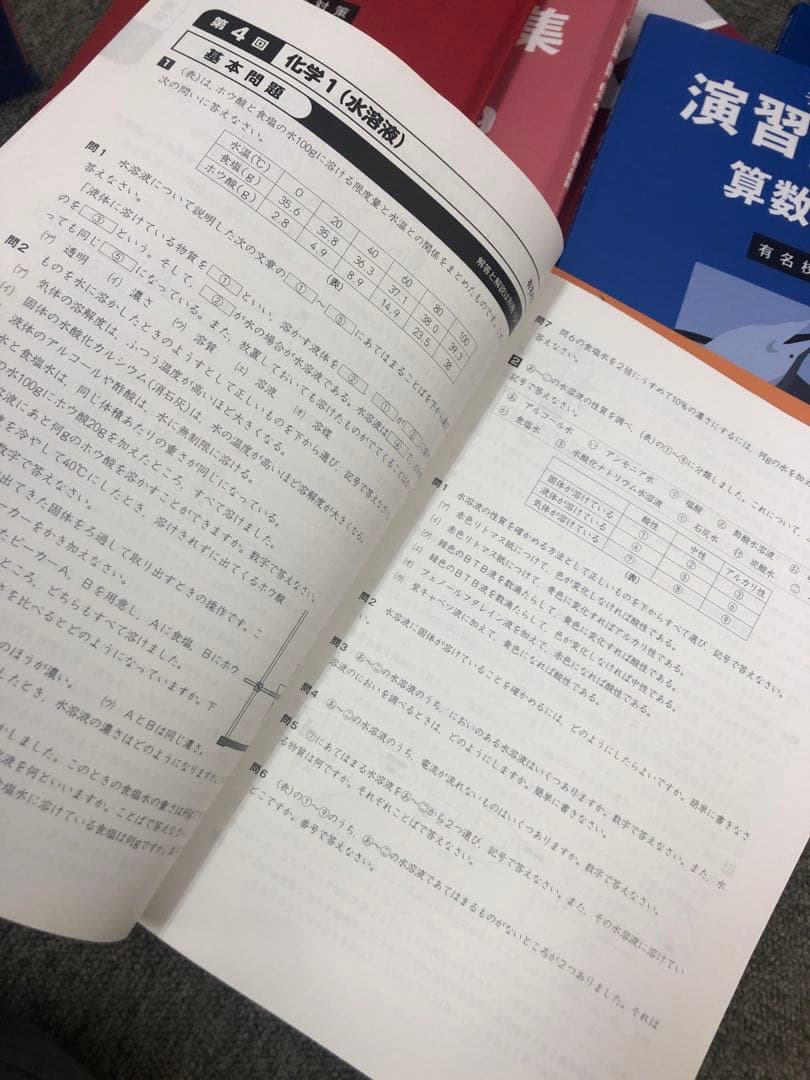 対策
集
演習
算数
有名
第4回 化学1(水溶液)
基本問題
解答と解説は別冊
1 (表)は、ホウ酸と食塩の水100gに溶ける限度量と水温との関係をまとめたものです。
次の問いに答えなさい。
水温(℃) 0 20 40 60 80 100
食塩(g) 35.6 35.8 36.3 37.1 38.0 39.3
ホウ酸(g) 2.8 4.9 8.9 14.9 23.5 38
(表)
問1 水溶液について説明した次の文章の①~⑤にあてはまることばを下から
答えなさい。
「液体に溶けている物質を①といい、溶かす液体を②、①が②
のを③という。そして、②が水の場合が水溶液である。水溶液は④で、
っても同じ⑤になっている。また、放置しておいても溶けたものがでてくることは
(ア) 透明 (イ) 濃さ (ウ) 溶質 (エ) 溶液 (オ) 溶媒
問2 ものを水に溶かしたときのようすとして正しいものを下から選び、記号で答えなさい。
(ア) 気体の溶解度は、ふつう温度が高いほど大きくなる。
(イ) 固体の水酸化カルシウム(消石灰)は、水の温度が高いほど溶解度が大きくなる。
液体のアルコールや酢酸は、水に無制限に溶ける。
水と食塩水は、同じ体積あたりの重さが同じになっている。
の水100gにホウ酸20gを加えたところ、すべて溶けました。
溶液にあと何gのホウ酸を溶かすことができますか。数字で答えなさい。
を冷やして40℃にしたとき、溶けきれずに出てくるホウ酸
数字で答えなさい。
出てきた固体をろ過して取り出すときの操作です。こ
ーカーをかき加えなさい。
たビーカーA、Bを用意し、Aに食塩、Bにホウ
ところ、どちらもすべて溶けました。
さを比べるとどのようになっていますか。下
のほうが濃い。 (ウ) AとBは同じ濃さ。
したとき、水溶液の濃さはどのようになりますか。
かしました。このときの食塩水の重さは何g
液を何といいますか。ことばで答えなさい。
食塩水に溶けている食塩は何gですか。
問7 問6の食塩水を2倍にうすめて10%の濃さにするには、何gの水を加え
答えなさい。
2 あ~この水溶液の性質を調べ、(表)の①~⑨に分類しました。これについて、
記号で答えなさい。
あ アルコール水 い アンモニア水 う 塩酸 え 酢酸水溶液 お
か 食塩水 き 水酸化ナトリウム水溶液 く 石灰水 け 炭酸水 こ
酸性 中性 アルカリ性
固体が溶けている ① ② ③
液体が溶けている ④ ⑤ ⑥
気体が溶けている ⑦ ⑧ ⑨
(表)
問1 水溶液の性質を確かめる方法として正しいものを下からすべて選び、記号で答えなさい。
(ア) 赤色リトマス紙につけて、色が変化しなければ酸性である。
(イ) 赤色リトマス紙につけて、青色に変化すればアルカリ性である。
(ウ) 緑色のBTB液を数滴たらして、黄色に変化すれば酸性である。
(エ) 緑色のBTB液を数滴たらして、色が変化しなければ中性である。
(オ) フェノールフタレイン液を加えて、赤色になれば酸性である。
(カ) 紫キャベツ液に加えて、黄色になれば酸性である。
問2 水溶液に固体が溶けていることを確かめるには、どのようにしたらよいですか。簡単に書きなさ
い。
問3 あ~この水溶液のうち、においのある水溶液はいくつありますか。数字で答えなさい。また、水
溶液のにおいを調べるときは、どのようにしますか。簡単に書きなさい。
問4 あ~この水溶液のうち、電流が流れないものはいくつありますか。数字で答えなさい。
問5 ⑦にあてはまる水溶液をあ~こから2つ選び、記号で答えなさい。また、その水溶液に溶けてい
る物質は何ですか。それぞれことばで答えなさい。
問6 (表)の①~⑨のうち、あ~この水溶液であてはまるものがないところが2つありました。それは
どこですか。番号で答えなさい。